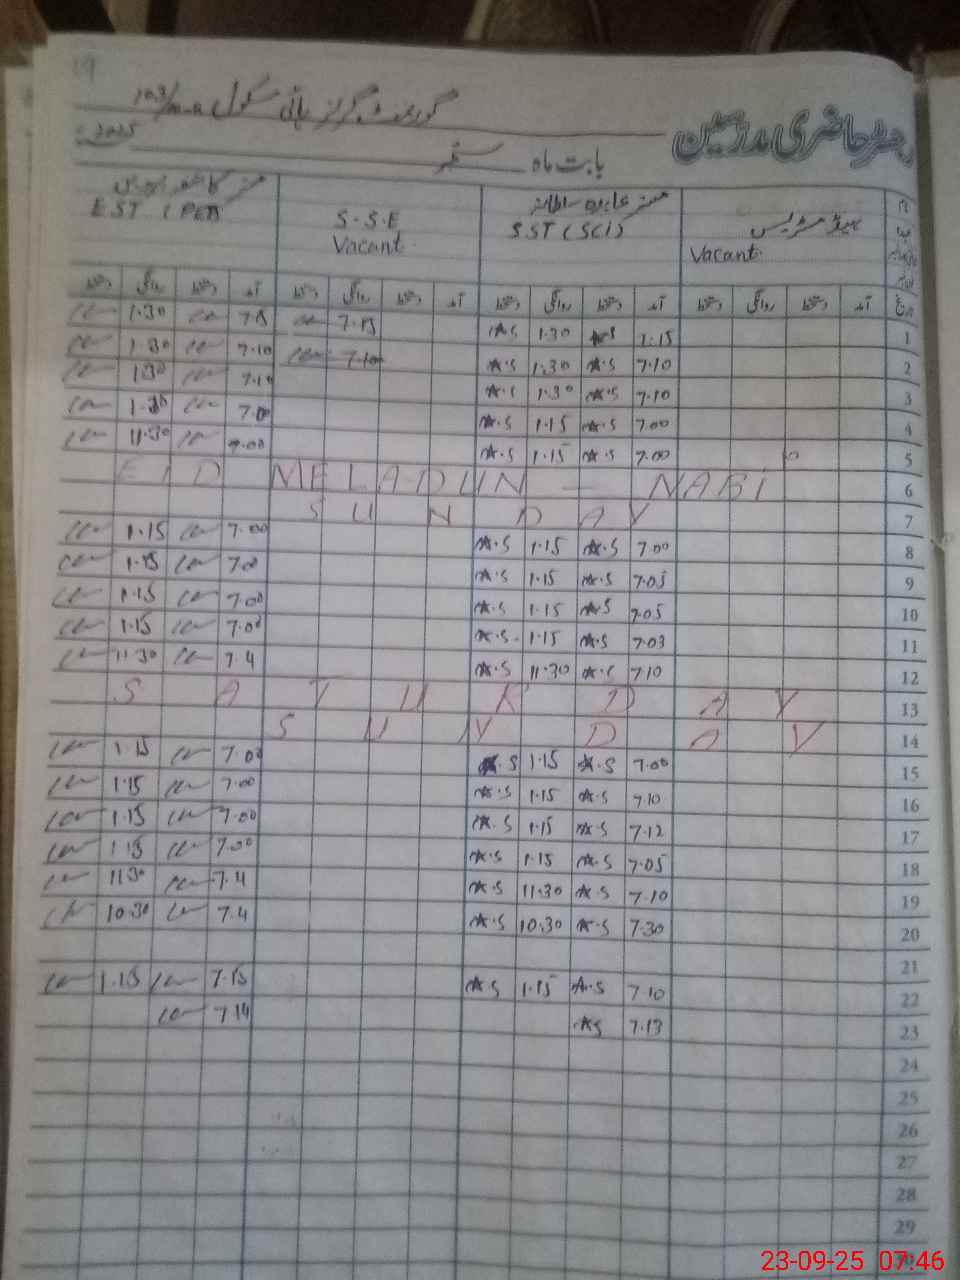 19
گورنمنٹ گرلز ہائی سکول 103/m-a
رجسٹر حاضری مدرسین
بابت ماہ ستمبر 2025
ہیڈ مسٹریس
Vacant.
SST (SCi)
S.S.E
Vacant.
EST (PET)
تاریخ آمد دستخط روانگی دستخط آمد دستخط روانگی دستخط آمد دستخط روانگی دستخط آمد دستخط روانگی دستخط
1.30 7.15 7.15 A.S 1.30 A.S 7.15 1
1.30 7.10 7.10 A.S 1.30 A.S 7.10 2
1.30 7.10 A.S 1.30 A.S 7.10 3
1.30 7.00 A.S 1.15 A.S 7.00 4
11.30 7.00 A.S 1.15 A.S 7.00 5
EID MELADUN - NABI 6
SUNDAY 7
1.15 7.00 A.S 1.15 A.S 7.00 8
1.15 7.00 A.S 1.15 A.S 7.05 9
1.15 7.00 A.S 1.15 A.S 7.05 10
1.15 7.00 A.S 1.15 A.S 7.03 11
11.30 7.4 A.S 11.30 A.S 7.10 12
SATURDAY 13
SUNDAY 14
1.15 7.00 A.S 1.15 A.S 7.00 15
1.15 7.00 A.S 1.15 A.S 7.10 16
1.15 7.00 A.S 1.15 A.S 7.12 17
1.15 7.00 A.S 1.15 A.S 7.05 18
11.30 7.4 A.S 11.30 A.S 7.10 19
10.30 7.4 A.S 10.30 A.S 7.30 20
21
1.15 7.15 A.S 1.15 A.S 7.10 22
7.14 A.S 7.13 23
24
25
26
27
28
29
23-09-25 07:46